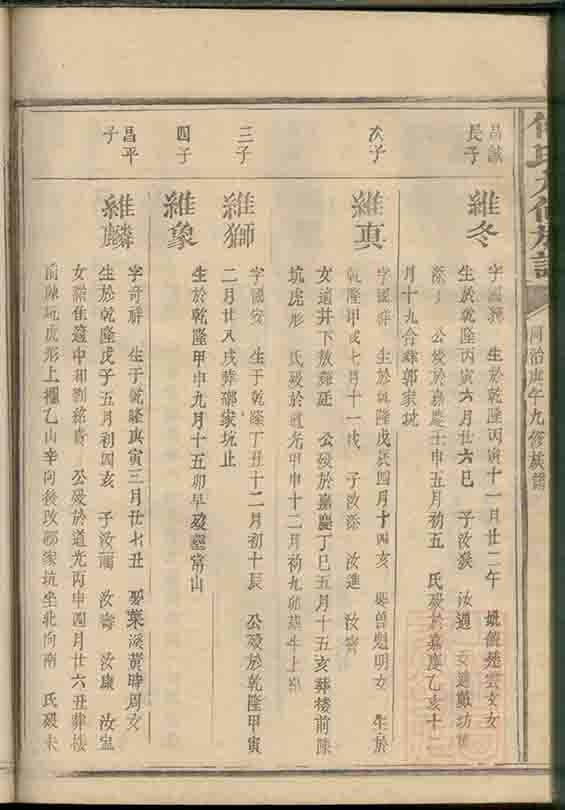 氏九修族譜
同治庚午九修族譜
昌誠
長子
維冬
字國 生於乾隆丙寅十一月廿二午 女
生於乾隆丙寅六月廿六巳 子汝 汝 女適戴
公歿於嘉慶壬申五月初五 氏歿於嘉慶乙亥十二
月十九合葬郭家坑
次子
維真
字國 生於乾隆戊辰四月十四亥 娶曾魁明女 生於
乾隆甲戌七月十一戌 子汝 汝進 汝
女適井下敖 公歿於嘉慶丁巳五月十五亥葬樓前陳
坑虎形 氏歿於道光甲申十二月初九卯葬牛上
三子
維獅
字國安 生于乾隆丁丑十二月初十辰 公歿於乾隆甲寅
二月廿八戌葬鄒家坑止
四子
維象
生於乾隆甲申九月十五卯早歿 常山
昌平
子
維麟
字奇祥 生于乾隆庚寅三月廿七丑 娶葉溪黃時周女
生於乾隆戊子五月初四亥 子汝 汝 汝康 汝
女 適中和劉 公歿於道光丙申四月廿六丑葬樓
前陳坑虎形上 乙山辛向後改鄒家坑坐北向南 氏歿未